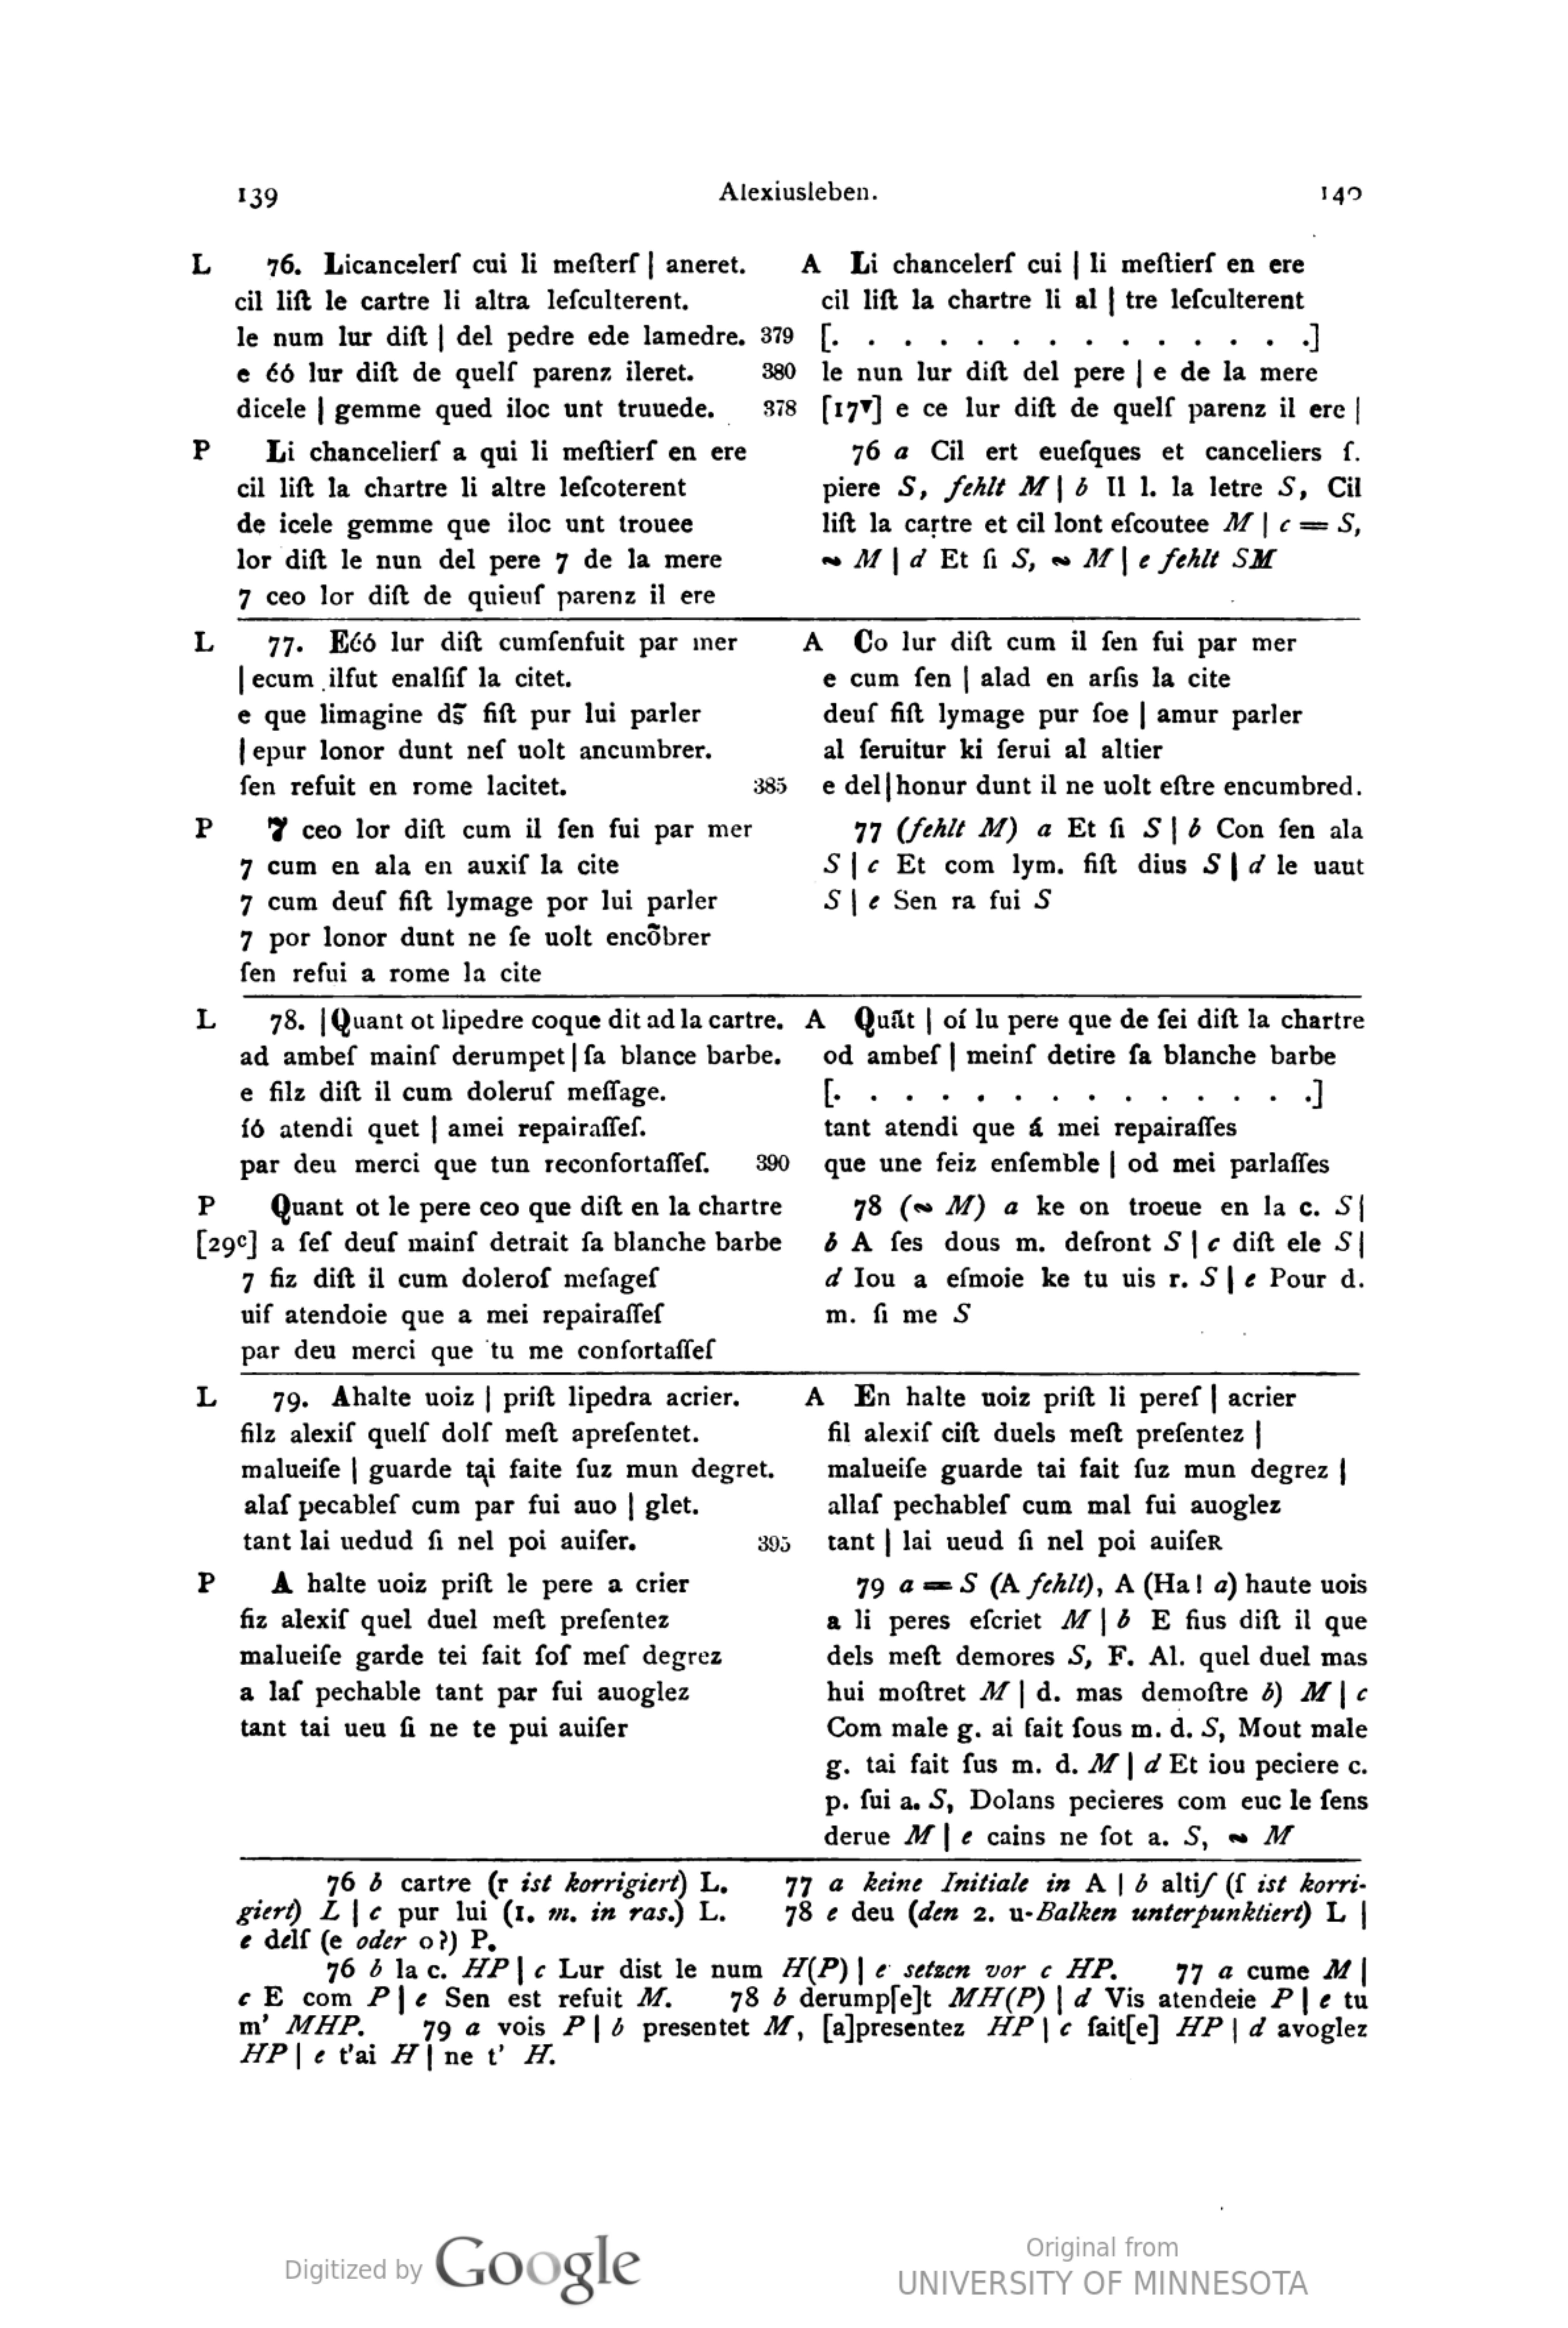 139 Alexiusleben. 140
L 76. Licancelerſ cui li meſterſ | aneret.
cil liſt le cartre li altra leſculterent.
le num lur diſt | del pedre ede lamedre. 379
e ćó lur diſt de quelſ parenz ileret. 380
dicele | gemme qued iloc unt truuede. 378
A Li chancelerſ cui | li meſtierſ en ere
cil liſt la chartre li al | tre leſculterent
[. . . . . . . . . . . . . .]
le nun lur diſt del pere | e de la mere
[17ᵛ] e ce lur diſt de quelſ parenz il ere |
P Li chancelierſ a qui li meſtierſ en ere
cil liſt la chartre li altre leſcoterent
de icele gemme que iloc unt trouee
lor diſt le nun del pere 7 de la mere
7 ceo lor diſt de quieuſ parenz il ere
76 a Cil ert eueſques et canceliers ſ.
piere S, fehlt M | b Il l. la letre S, Cil
liſt la cartre et cil lont eſcoutee M | c = S,
∾ M | d Et ſi S, ∾ M | e fehlt SM
L 77. Ećó lur diſt cumſenfuit par mer
| ecum ilfut enalſiſ la citet.
e que limagine dſ̄ fiſt pur lui parler
| epur lonor dunt neſ uolt ancumbrer.
ſen refuit en rome lacitet. 385
A Co lur diſt cum il ſen fui par mer
e cum ſen | alad en arſis la cite
deuſ fiſt lymage pur ſoe | amur parler
al ſeruitur ki ſerui al altier
e del|honur dunt il ne uolt eſtre encumbred.
P 7 ceo lor diſt cum il ſen fui par mer
7 cum en ala en auxiſ la cite
7 cum deuſ fiſt lymage por lui parler
7 por lonor dunt ne ſe uolt encõbrer
ſen refui a rome la cite
77 (fehlt M) a Et ſi S | b Con ſen ala
S | c Et com lym. fiſt dius S | d le uaut
S | e Sen ra fui S
L 78. |Quant ot lipedre coque dit ad la cartre.
ad ambeſ mainſ derumpet | ſa blance barbe.
e filz diſt il cum doleruſ meſſage.
ſó atendi quet | amei repairaſſeſ.
par deu merci que tun reconfortaſſeſ. 390
A Quãt | oí lu pere que de ſei diſt la chartre
od ambeſ | meinſ detire ſa blanche barbe
[. . . . . . . . . . . . . .]
tant atendi que á mei repairaſſes
que une feiz enſemble | od mei parlaſſes
P Quant ot le pere ceo que diſt en la chartre
[29ᶜ] a ſeſ deuſ mainſ detrait ſa blanche barbe
7 fiz diſt il cum doleroſ meſageſ
uiſ atendoie que a mei repairaſſeſ
par deu merci que tu me confortaſſeſ
78 (∾ M) a ke on troeue en la c. S |
b A ſes dous m. defront S | c diſt ele S |
d Iou a eſmoie ke tu uis r. S | e Pour d.
m. ſi me S
L 79. Ahalte uoiz | priſt lipedra acrier.
filz alexiſ quelſ dolſ meſt apreſentet.
malueiſe | guarde tại faite ſuz mun degret.
alaſ pecableſ cum par fui auo | glet.
tant lai uedud ſi nel poi auiſer. 395
A En halte uoiz priſt li pereſ | acrier
fil alexiſ ciſt duels meſt preſentez |
malueiſe guarde tai fait ſuz mun degrez |
allaſ pechableſ cum mal fui auoglez
tant | lai ueud ſi nel poi auiſeʀ
P A halte uoiz priſt le pere a crier
fiz alexiſ quel duel meſt preſentez
malueiſe garde tei fait ſoſ meſ degrez
a laſ pechable tant par fui auoglez
tant tai ueu ſi ne te pui auiſer
79 a = S (A fehlt), A (Ha! a) haute uois
a li peres eſcriet M | b E fius diſt il que
dels meſt demores S, F. Al. quel duel mas
hui moſtret M | d. mas demoſtre b) M | c
Com male g. ai fait ſous m. d. S, Mout male
g. tai fait ſus m. d. M | d Et iou peciere c.
p. fui a. S, Dolans pecieres com euc le ſens
derue M | e cains ne ſot a. S, ∾ M
76 b cartre (r ist korrigiert) L. 77 a keine Initiale in A | b altiſ (ſ ist korri-
giert) L | c pur lui (1. m. in ras.) L. 78 e deu (den 2. u-Balken unterpunktiert) L |
e delſ (e oder o?) P.
76 b la c. HP | c Lur dist le num H(P) | e setzen vor c HP. 77 a cume M |
c E com P | e Sen est refuit M. 78 b derump[e]t MH(P) | d Vis atendeie P | e tu
m' MHP. 79 a vois P | b presentet M, [a]presentez HP | c fait[e] HP | d avoglez
HP | e t'ai H | ne t' H.
Digitized by Google
Original from
UNIVERSITY OF MINNESOTA